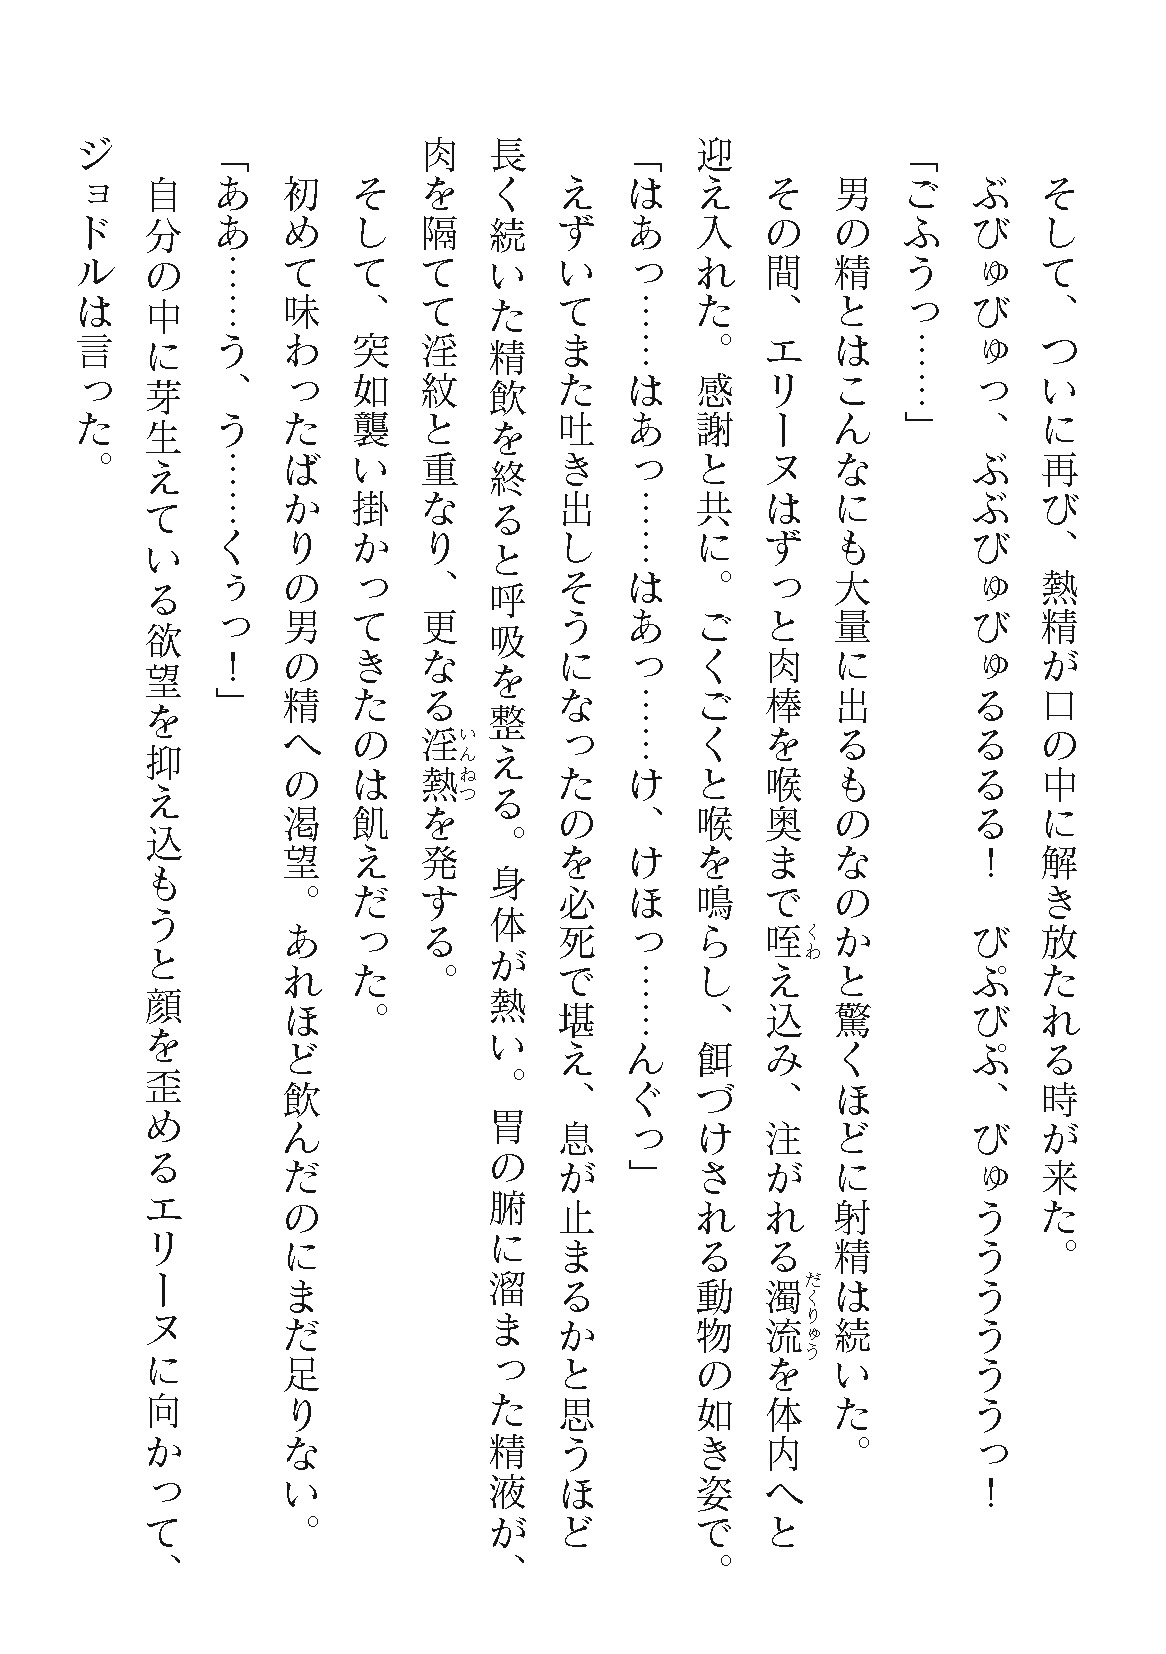 そして、ついに再び、熱精が口の中に解き放たれる時が来た。
ぶびゅびゅっ、ぶぶびゅびゅるるるる！　びぷびぷ、びゅうううううっ！
「ごふうっ……」
男の精とはこんなにも大量に出るものなのかと驚くほどに射精は続いた。
その間、エリーヌはずっと肉棒を喉奥まで咥え込み、注がれる濁流を体内へと
迎え入れた。感謝と共に。ごくごくと喉を鳴らし、餌づけされる動物の如き姿で。
「はあっ……はあっ……はあっ……け、けほっ……んぐっ」
えずいてまた吐き出しそうになったのを必死で堪え、息が止まるかと思うほど
長く続いた精飲を終ると呼吸を整える。身体が熱い。胃の腑に溜まった精液が、
肉を隔てて淫紋と重なり、更なる淫熱を発する。
そして、突如襲い掛かってきたのは飢えだった。
初めて味わったばかりの男の精への渇望。あれほど飲んだのにまだ足りない。
「ああ……う、う……くぅっ！」
自分の中に芽生えている欲望を抑え込もうと顔を歪めるエリーヌに向かって、
ジョドルは言った。